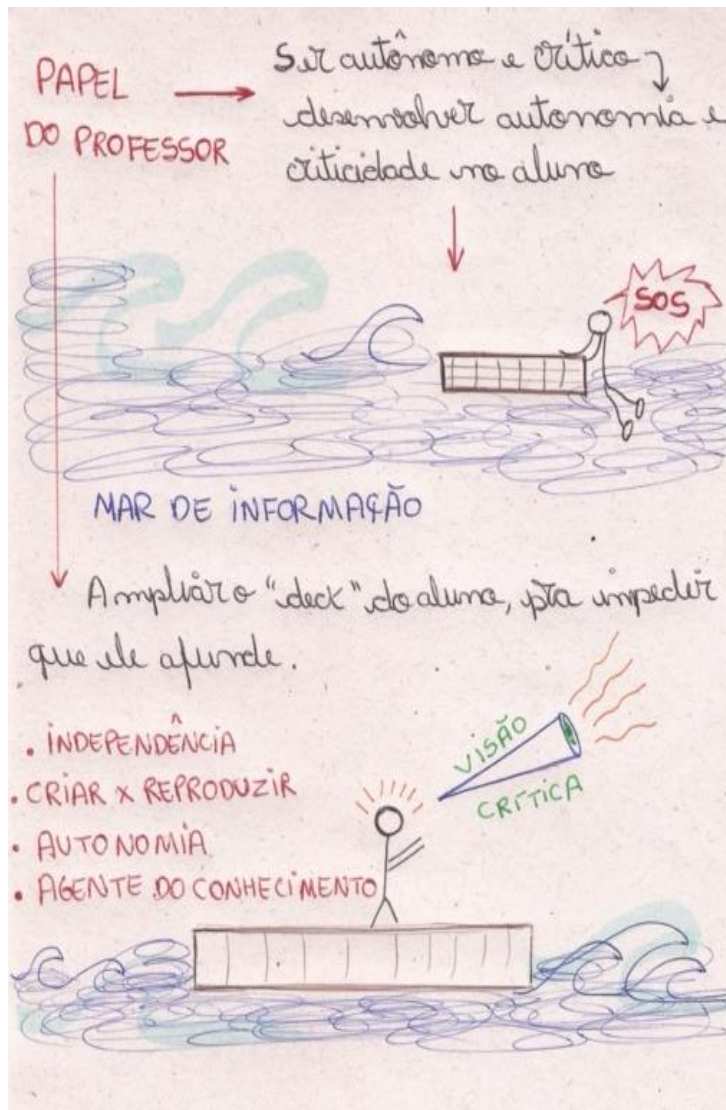 PAPEL
DO PROFESSOR
Ser autônomo e crítico
desenvolver autonomia e
criticidade no aluno
SOS
MAR DE INFORMAÇÃO
Ampliar o "deck" do aluno, pra impedir
que ele afunde.
. INDEPENDÊNCIA
. CRIAR X REPRODUZIR
. AUTONOMIA
. AGENTE DO CONHECIMENTO
VISÃO
CRÍTICA